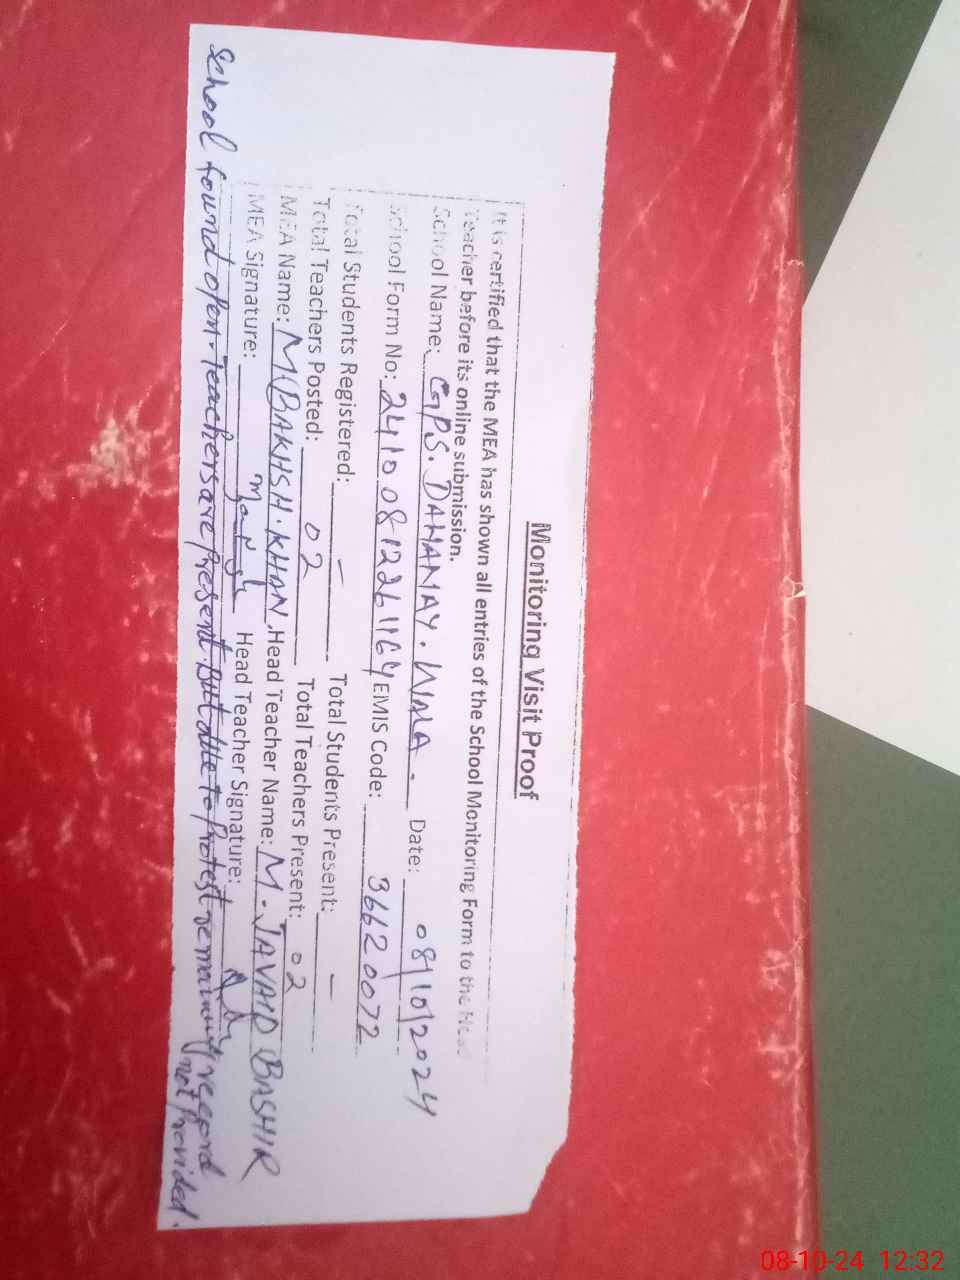 Monitoring Visit Proof
It is certified that the MEA has shown all entries of the School Monitoring Form to the Head
Teacher before its online submission.
School Name: GPS. DAHAMAY. WALA. Date: 08/10/2024
School Form No: 24100812261164 EMIS Code: 36620072
Total Students Registered: – Total Students Present: –
Total Teachers Posted: 02 Total Teachers Present: 02
MEA Name: M. BAKHSH. KHAN. Head Teacher Name: M. JAVAID BASHIR
MEA Signature: Head Teacher Signature:
School found open. Teachers are present. But due to protest remaining record
not provided.
08-10-24 12:32